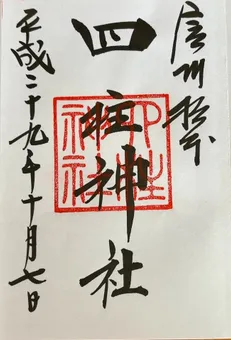 信州松本
四柱神社
四柱神社
平成二十九年十月七日